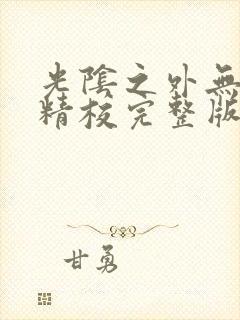 光陰之外無
精校完整版
甘勇